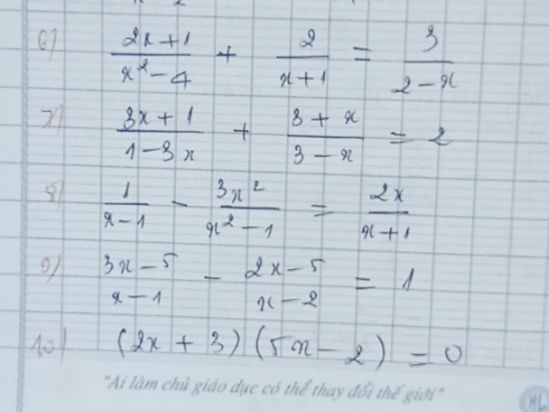 6) (2x+1)/(x²-4) + 2/(x+1) = 3/(2-x)
7) (3x+1)/(1-3x) + (3+x)/(3-x) = 2
8) 1/(x-1) - 3x²/(x²-1) = 2x/(x+1)
9) (3x-5)/(x-1) - (2x-5)/(x-2) = 1
10) (2x+3)(5x-2) = 0
"Ai làm chủ giáo dục có thể thay đổi thế giới"
HL